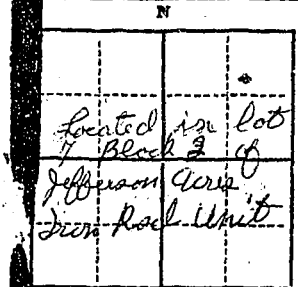 N
Located in lot
7 Block 2 of
Jefferson Acres
Iron Rail Unit